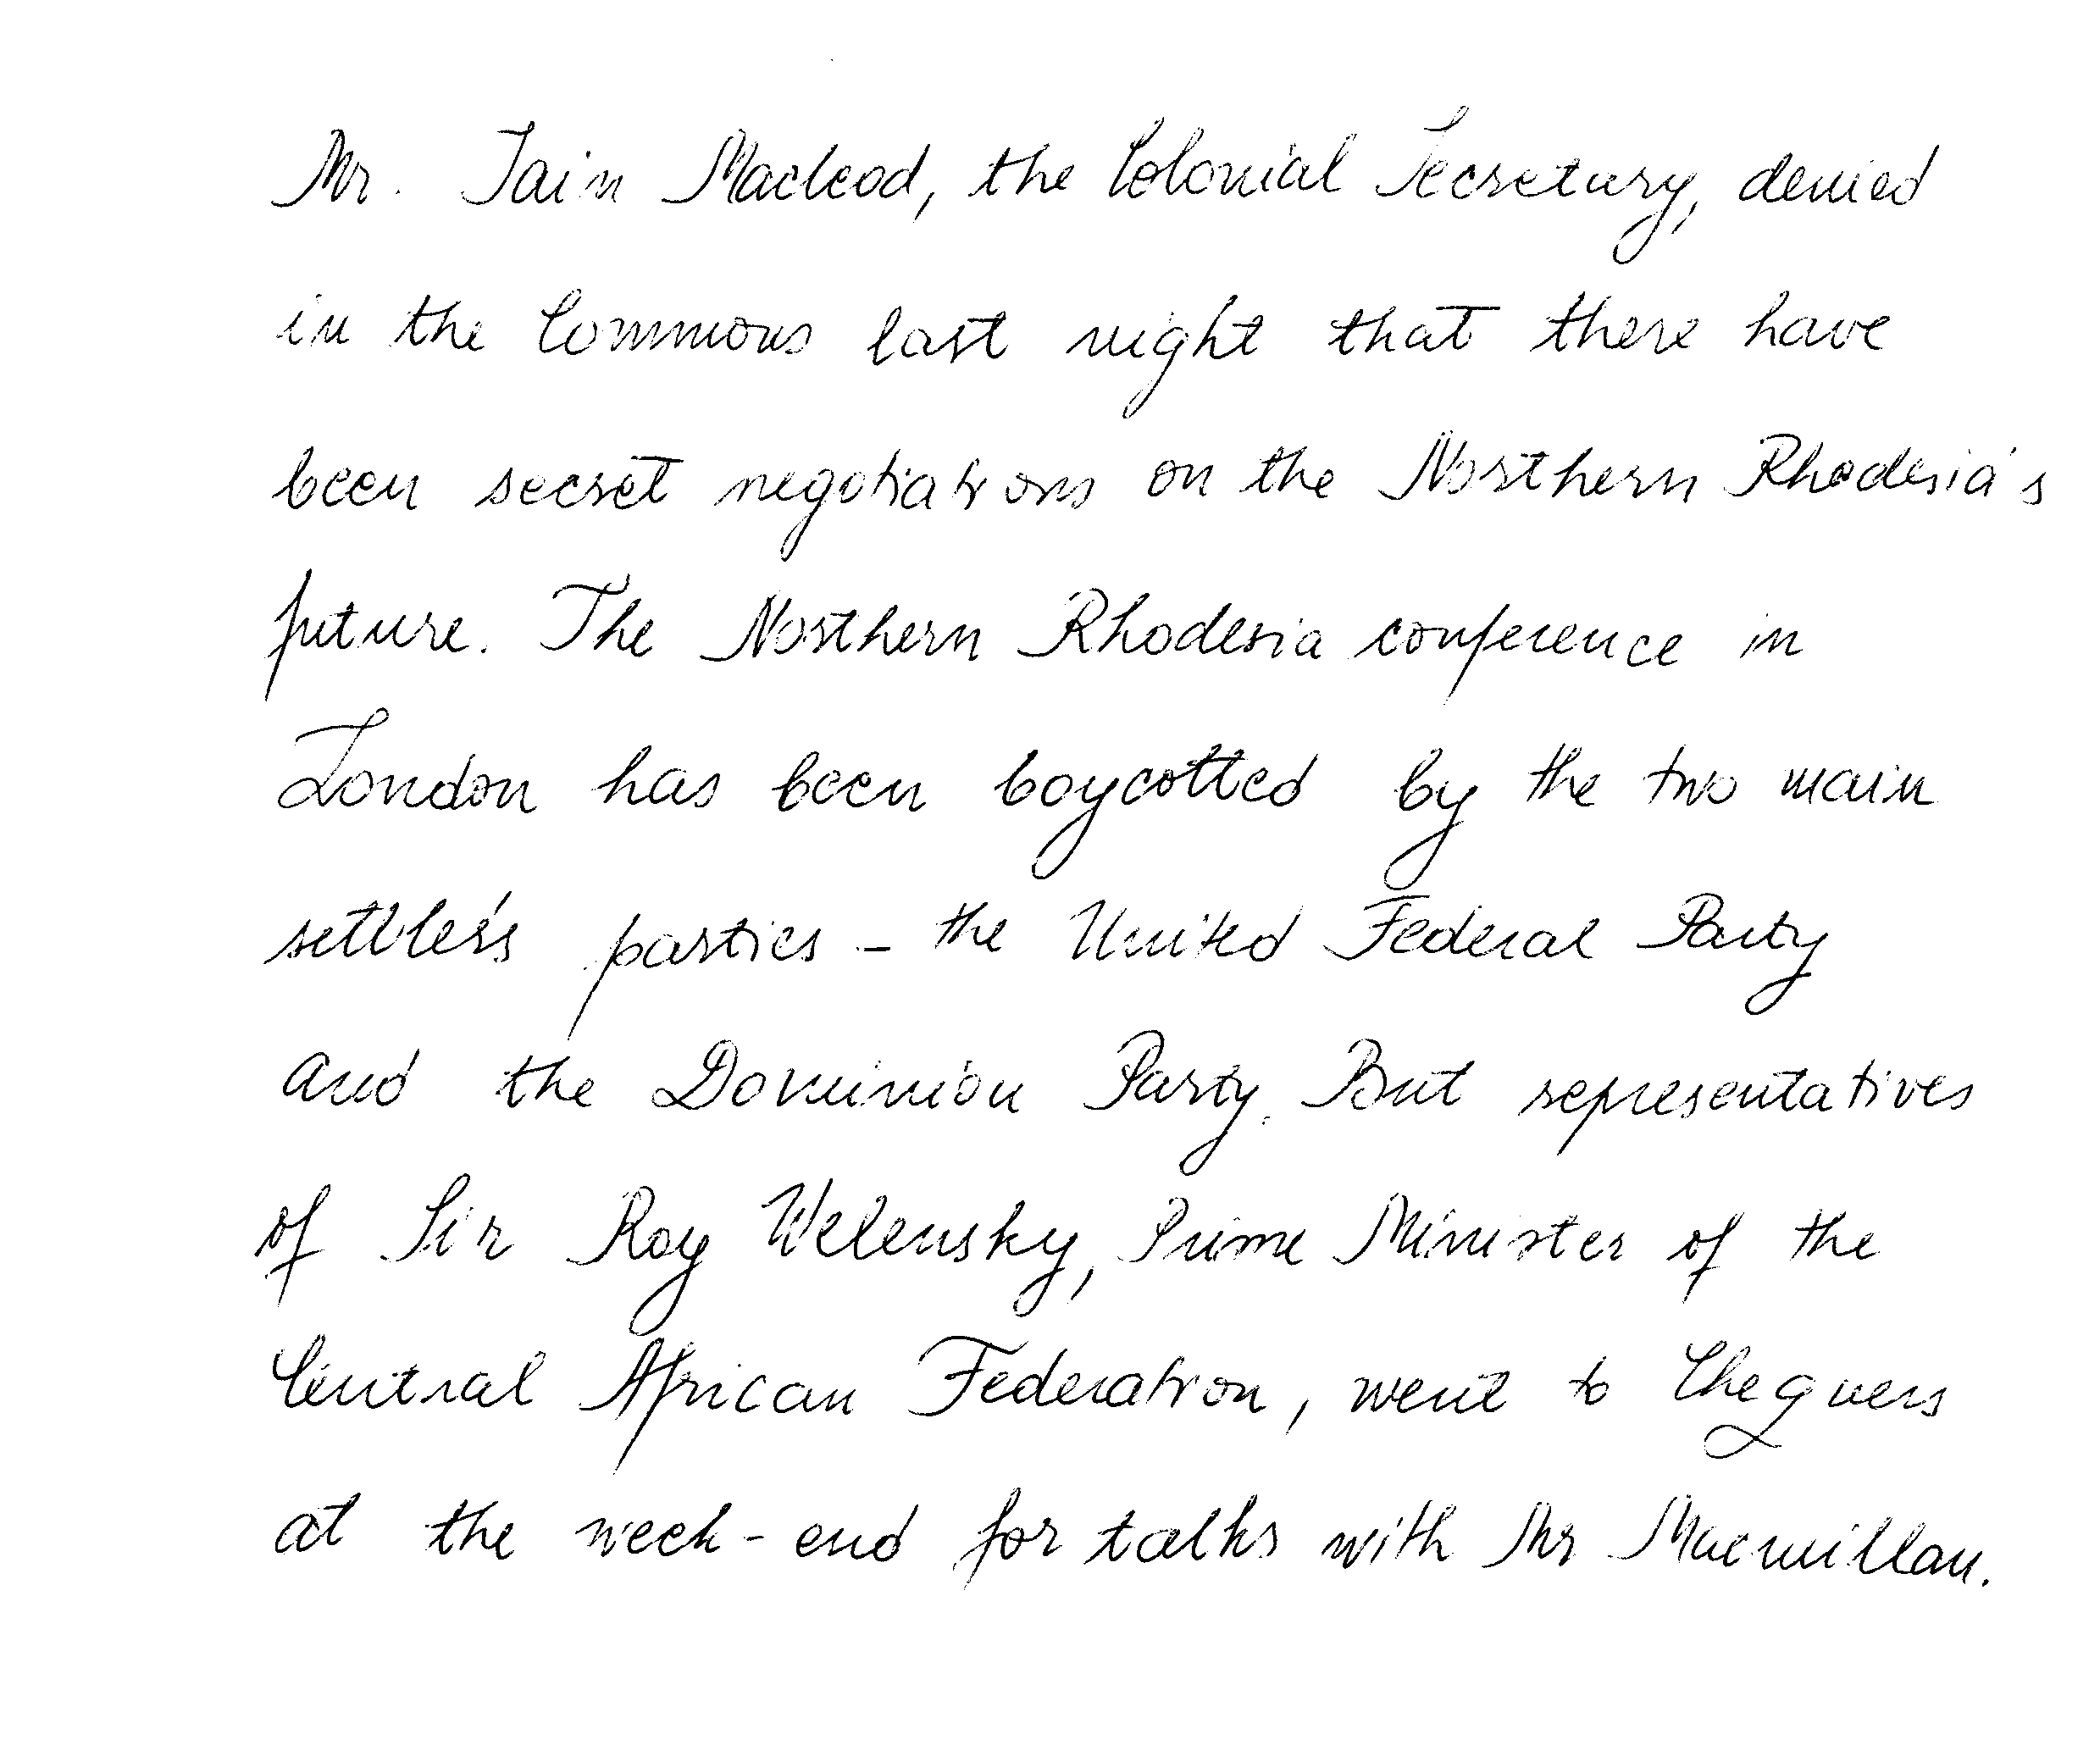 Mr. Iain Macleod, the Colonial Secretary, denied
in the Commons last night that there have
been secret negotiations on the Northern Rhodesia's
future. The Northern Rhodesia conference in
London has been boycotted by the two main
settlers parties - the United Federal Party
and the Dominion Party. But representatives
of Sir Roy Welensky, Prime Minister of the
Central African Federation, went to Chequers
at the week-end for talks with Mr Macmillan.